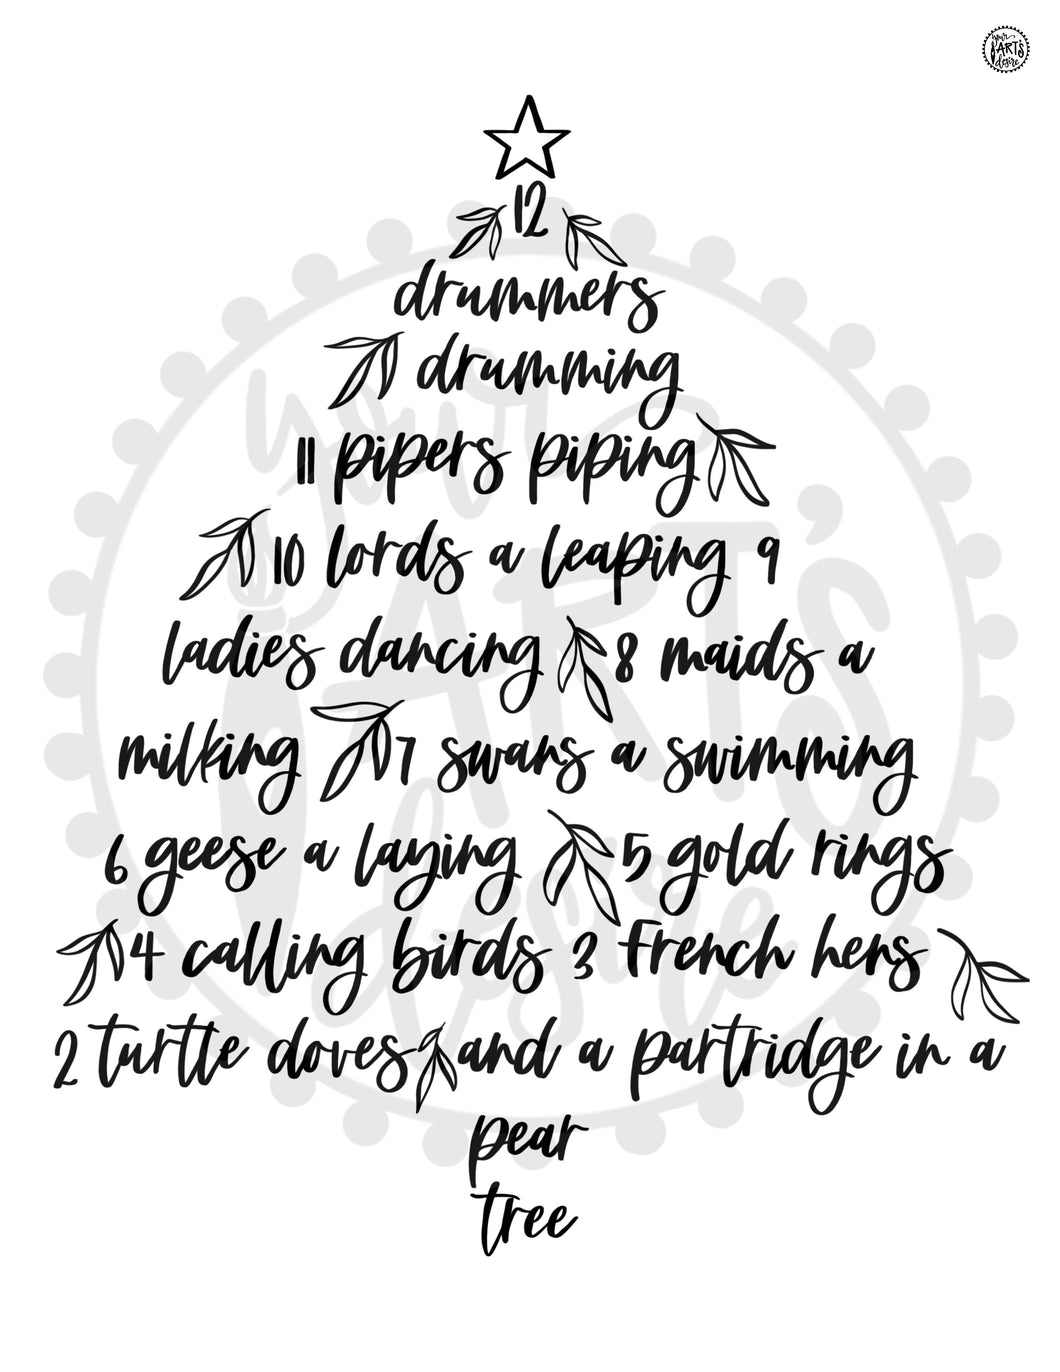 your
ART'S
desire
12
drummers
drumming
11 pipers piping
10 lords a leaping 9
ladies dancing 8 maids a
milking 7 swans a swimming
6 geese a laying 5 gold rings
4 calling birds 3 French hens
2 turtle doves and a partridge in a
pear
tree
your
ART'S
desire